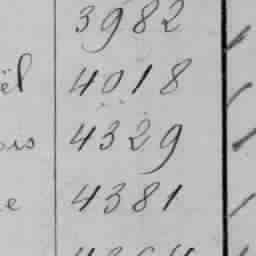 3982
ël 4018
ois 4329
e 4381